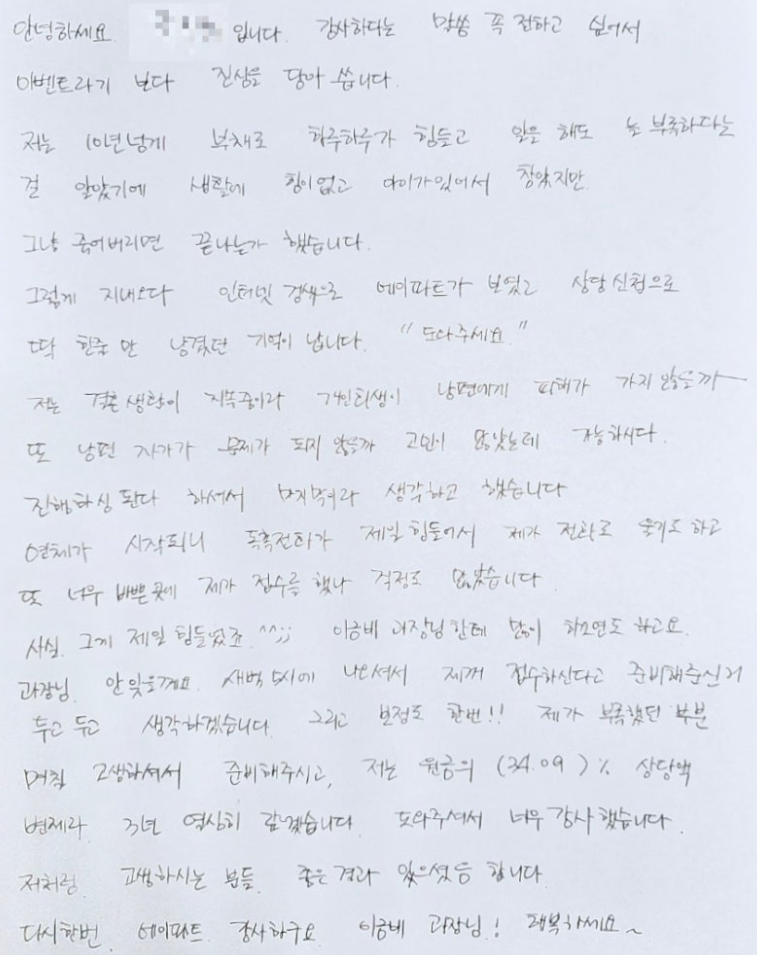 안녕하세요. 입니다. 감사하다는 말씀 꼭 전하고 싶어서
이벤트라기 보다 진심을 담아 씁니다.
저는 10년넘게 부채로 하루하루가 힘들고 일을 해도 늘 부족하다는
걸 알았기에 생활에 힘이없고 아이가있어서 참았지만
그냥 죽어버리면 끝나는가 했습니다.
그렇게 지내오다 인터넷 검색으로 에이파트가 보였고 상담신청으로
딱 한줄만 남겼던 기억이 납니다. "도와주세요"
저는 결혼생활이 지속중이라 개인회생이 남편에게 피해가 가지않을까-
또 남편 자가가 문제가 되지 않을까 고민이 많았는데 가능하시다.
진행하심 된다 하셔서 마지막이라 생각하고 했습니다
연체가 시작되니 독촉전화가 제일 힘들어서 제가 전화로 울기도 하고
또 너무 바쁜곳에 제가 접수를 했나 걱정도 많았습니다
사실. 그게 제일 힘들었죠.^^;; 이금비 과장님한테 많이 하소연도 하고요.
과장님. 안잊을께요. 새벽 5시에 나오셔서 제꺼 접수하신다고 준비해주신거
두고 두고 생각하겠습니다. 그리고 보정도 한번!! 제가 부족했던 부분
며칠 고생하셔서 준비해주시고, 저는 원금의 (34.09)% 상당액
변제라 3년 열심히 갚겠습니다. 도와주셔서 너무 감사했습니다.
저처럼. 고생하시는 분들. 좋은결과 있으셨음 합니다.
다시한번. 에이파트. 감사하구요 이금비 과장님! 행복하세요~